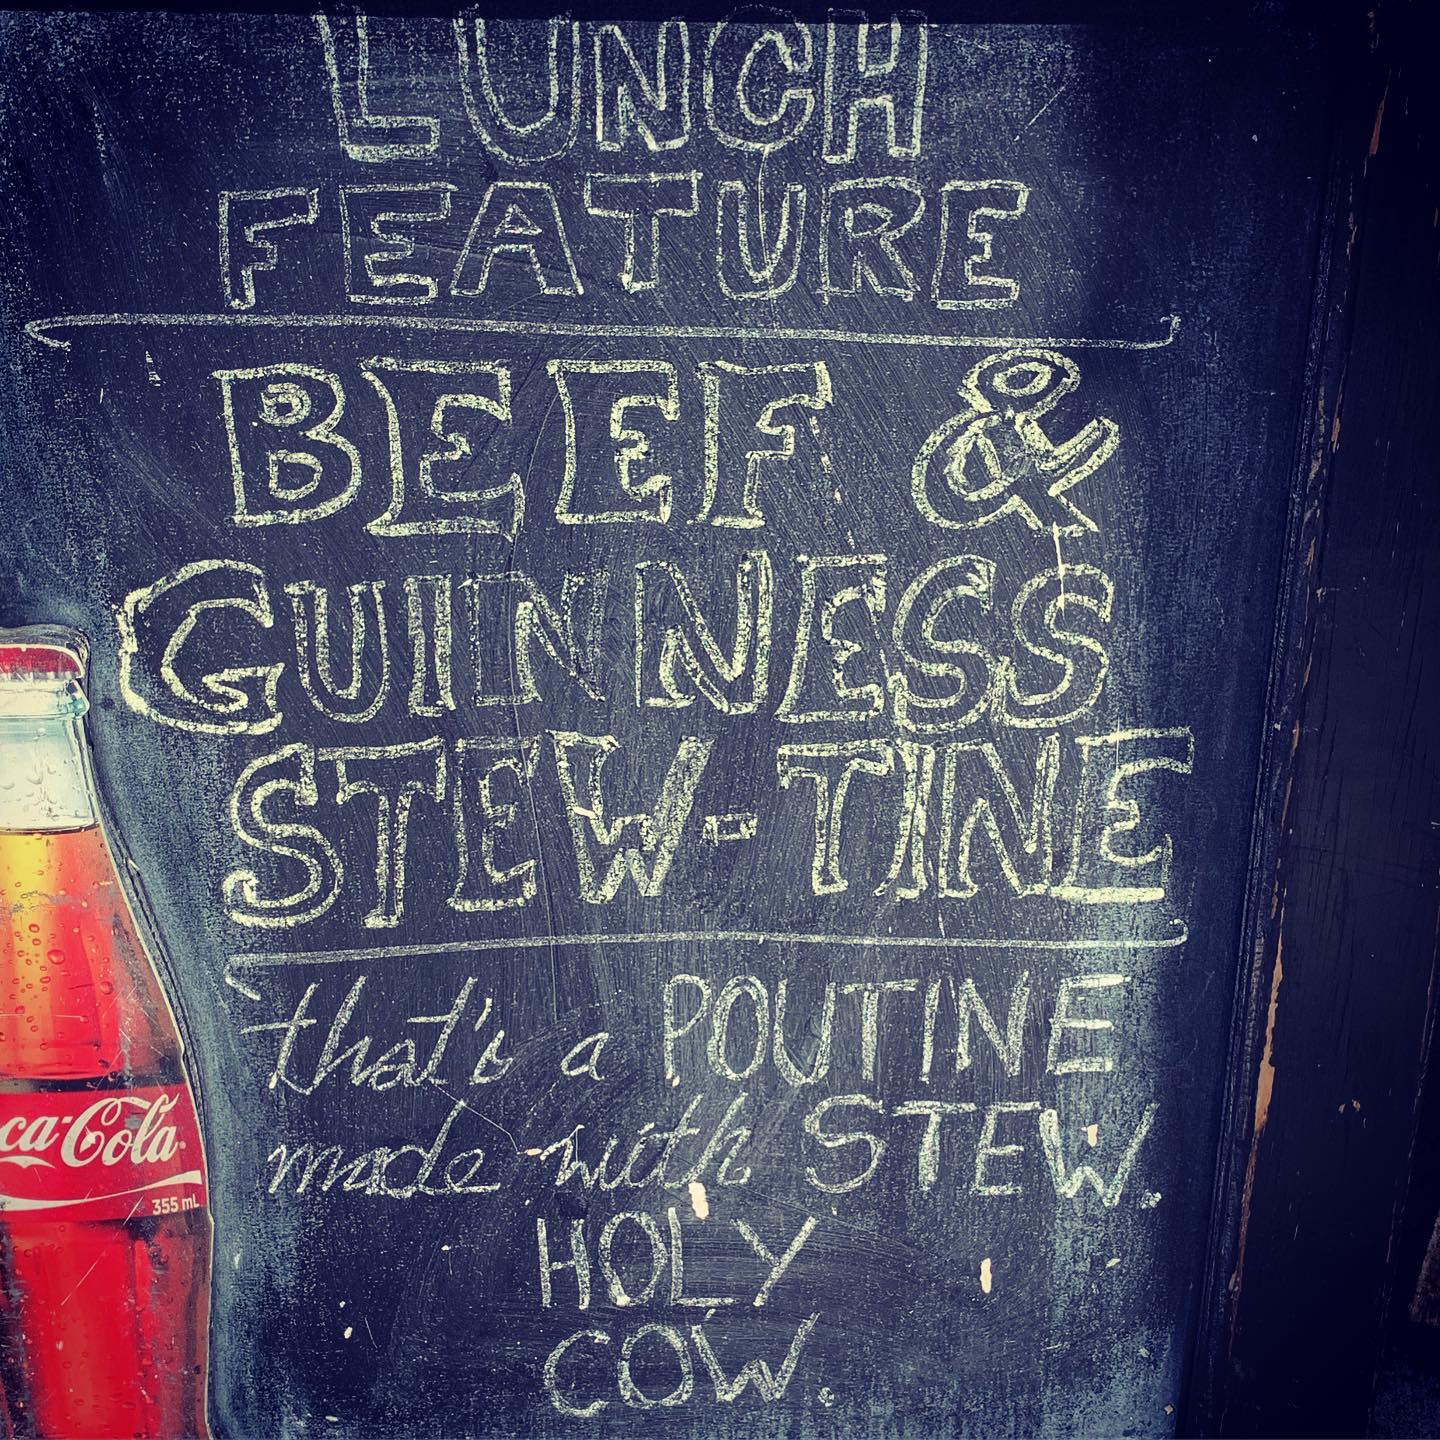 LUNCH
FEATURE
BEEF &
GUINNESS
STEW-TINE
that's a POUTINE
made with STEW.
HOLY
COW.
ca-Cola
355 mL